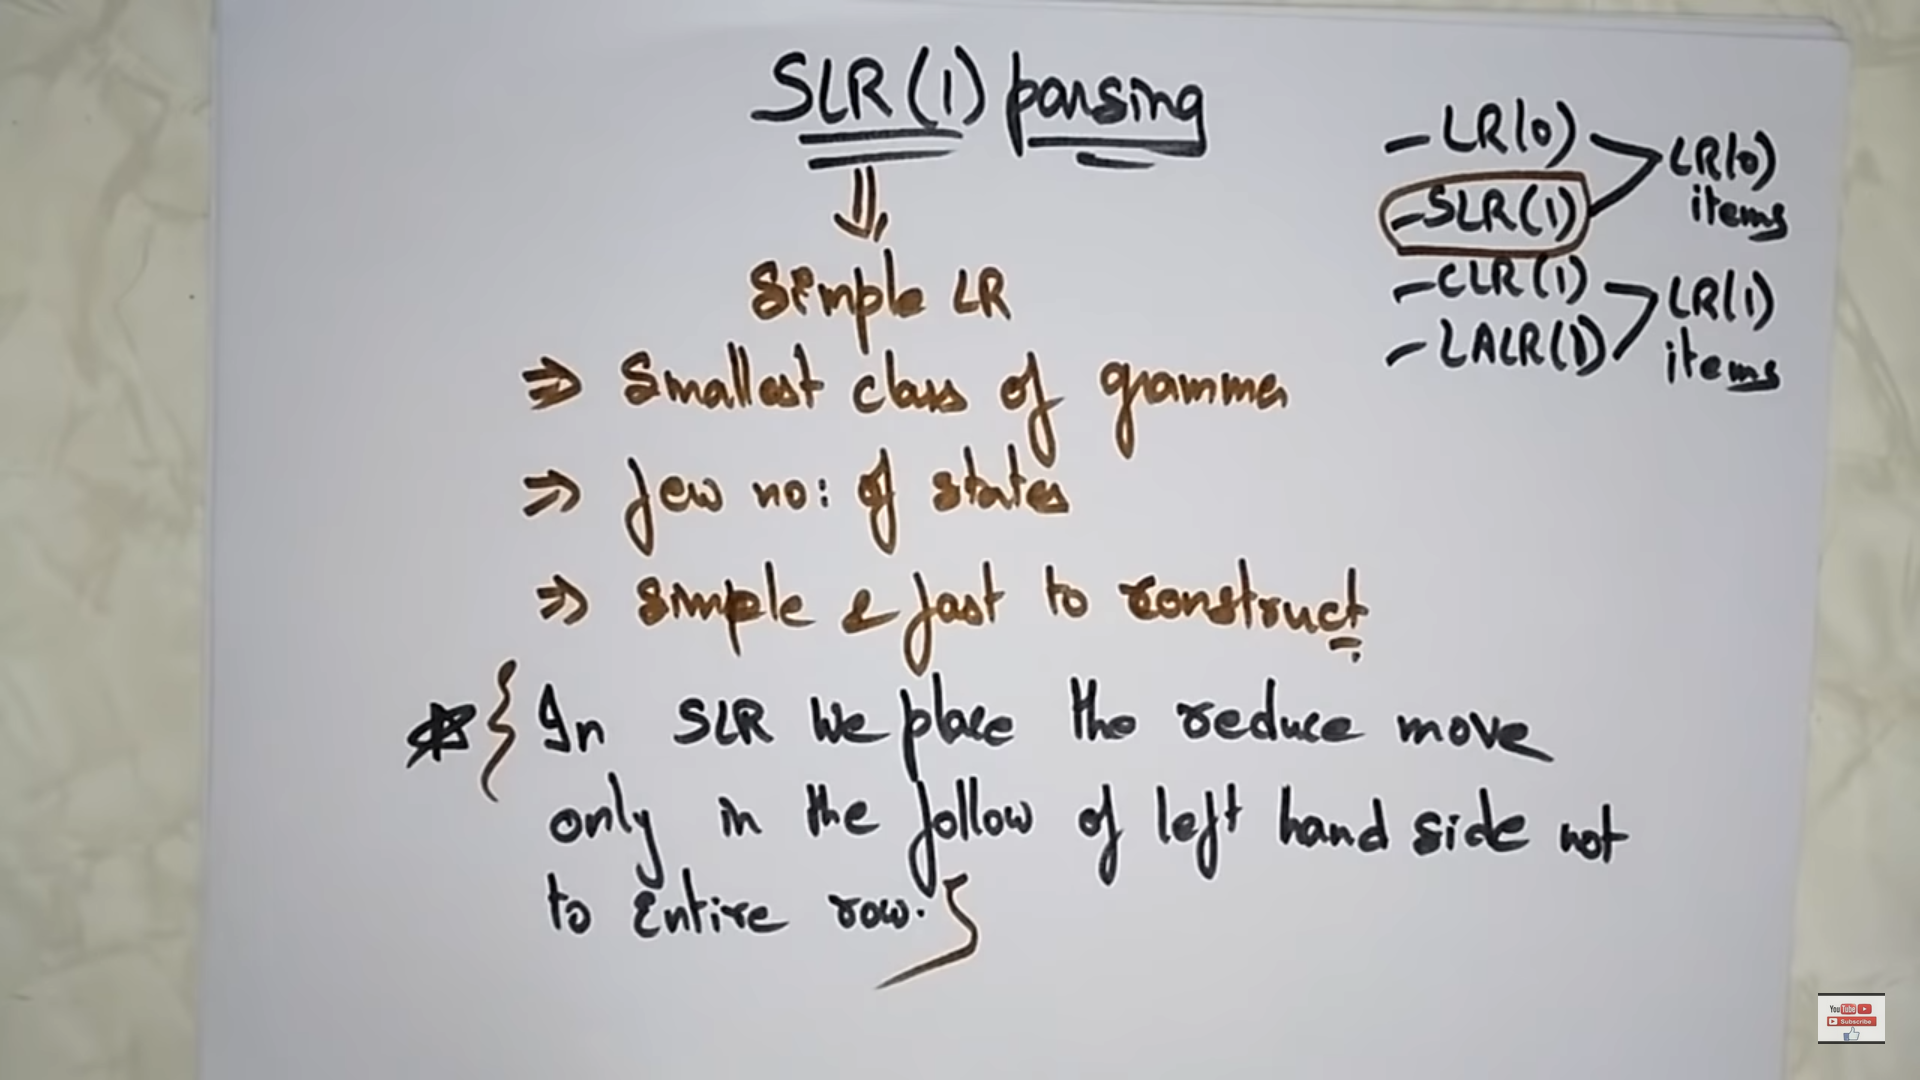 SLR(1) parsing
Simple LR
⇒ Smallest class of grammer
⇒ few no: of states
⇒ Simple & fast to construct
☆ { In SLR we place the reduce move
only in the follow of left hand side not
to Entire row. }
- LR(0)
- SLR(1)
LR(0)
items
- CLR(1)
- LALR(1)
LR(1)
items
YouTube
Subscribe